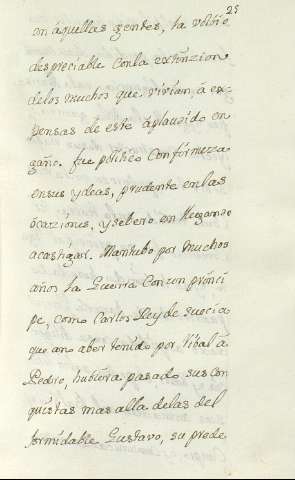 25
en aquellas gentes, la volbio
despreciable con la extenzion
de los muchos que vivian, á ex-
pensas de este áplaudido en
gaño. fue politico con fórmeza
en sus ydeas, prudente en las
ócaziones, y sebero en llegando
a castigar. Mantubo por muchos
años la Guerra con un princi
pe, como Carlos Rey de suecia
que a no aber tenido por, Ribal á
Pedro, hubiera pasado sus con
quistas mas alla de las del
formidable Gustavo, su prede